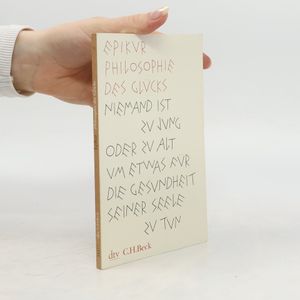 EPIKVR
PHILOSOPHIE
DES GLVCKS
NIEMAND IST
ZV JUNG
ODER ZV ALT
VM ETWAS FVR
DIE GESVNDHEIT
SEINER SEELE
ZV TVN
dtv C.H.Beck